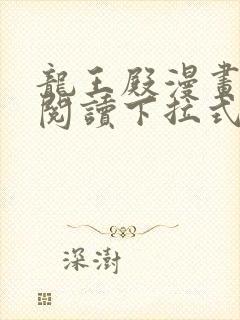 龍王殿漫畫
閱讀下拉式
深澍